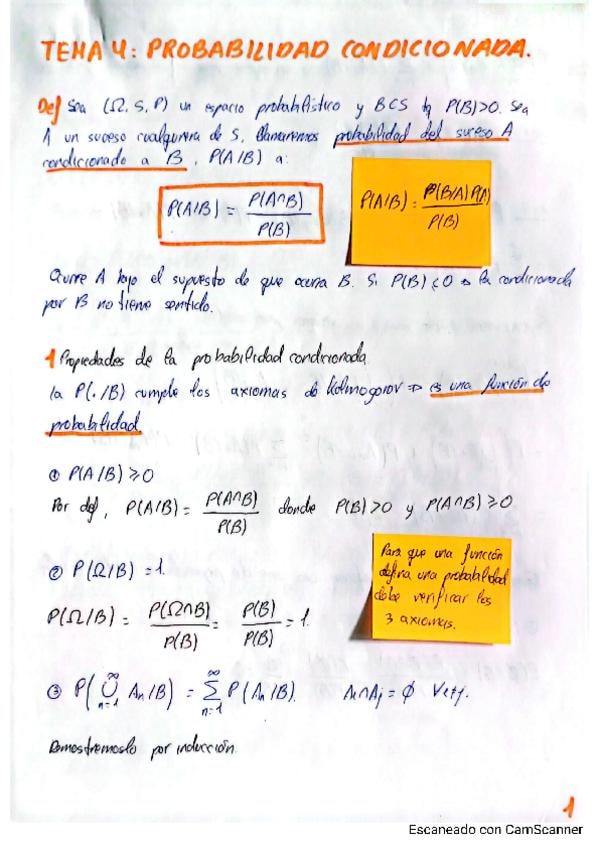 TEMA 4: PROBABILIDAD CONDICIONADA.
Def Sea (Ω, S, P) un espacio probabilístico y B⊂S tq P(B)>0. Sea
A un suceso cualquiera de S, llamaremos probabilidad del suceso A
condicionado a B, P(A/B) a:
P(A/B) = P(A∩B) / P(B)
P(A/B) = P(B/A) P(A) / P(B)
Ocurre A bajo el supuesto de que ocurra B. Si P(B) < 0 ⇒ la condicionada
por B no tiene sentido.
1 Propiedades de la probabilidad condicionada.
la P(./B) cumple los axiomas de Kolmogorov ⇒ es una función de
probabilidad
① P(A/B) ≥ 0
Por def, P(A/B) = P(A∩B) / P(B) donde P(B)>0 y P(A∩B) ≥ 0
Para que una función
defina una probabilidad
debe verificar los
3 axiomas.
② P(Ω/B) = 1.
P(Ω/B) = P(Ω∩B) / P(B) = P(B) / P(B) = 1.
③ P(∪ₙ₌₁^∞ An/B) = Σₙ₌₁^∞ P(An/B). Ai∩Aj = ∅ ∀i≠j.
Demostremoslo por inducción.
1
Escaneado con CamScanner